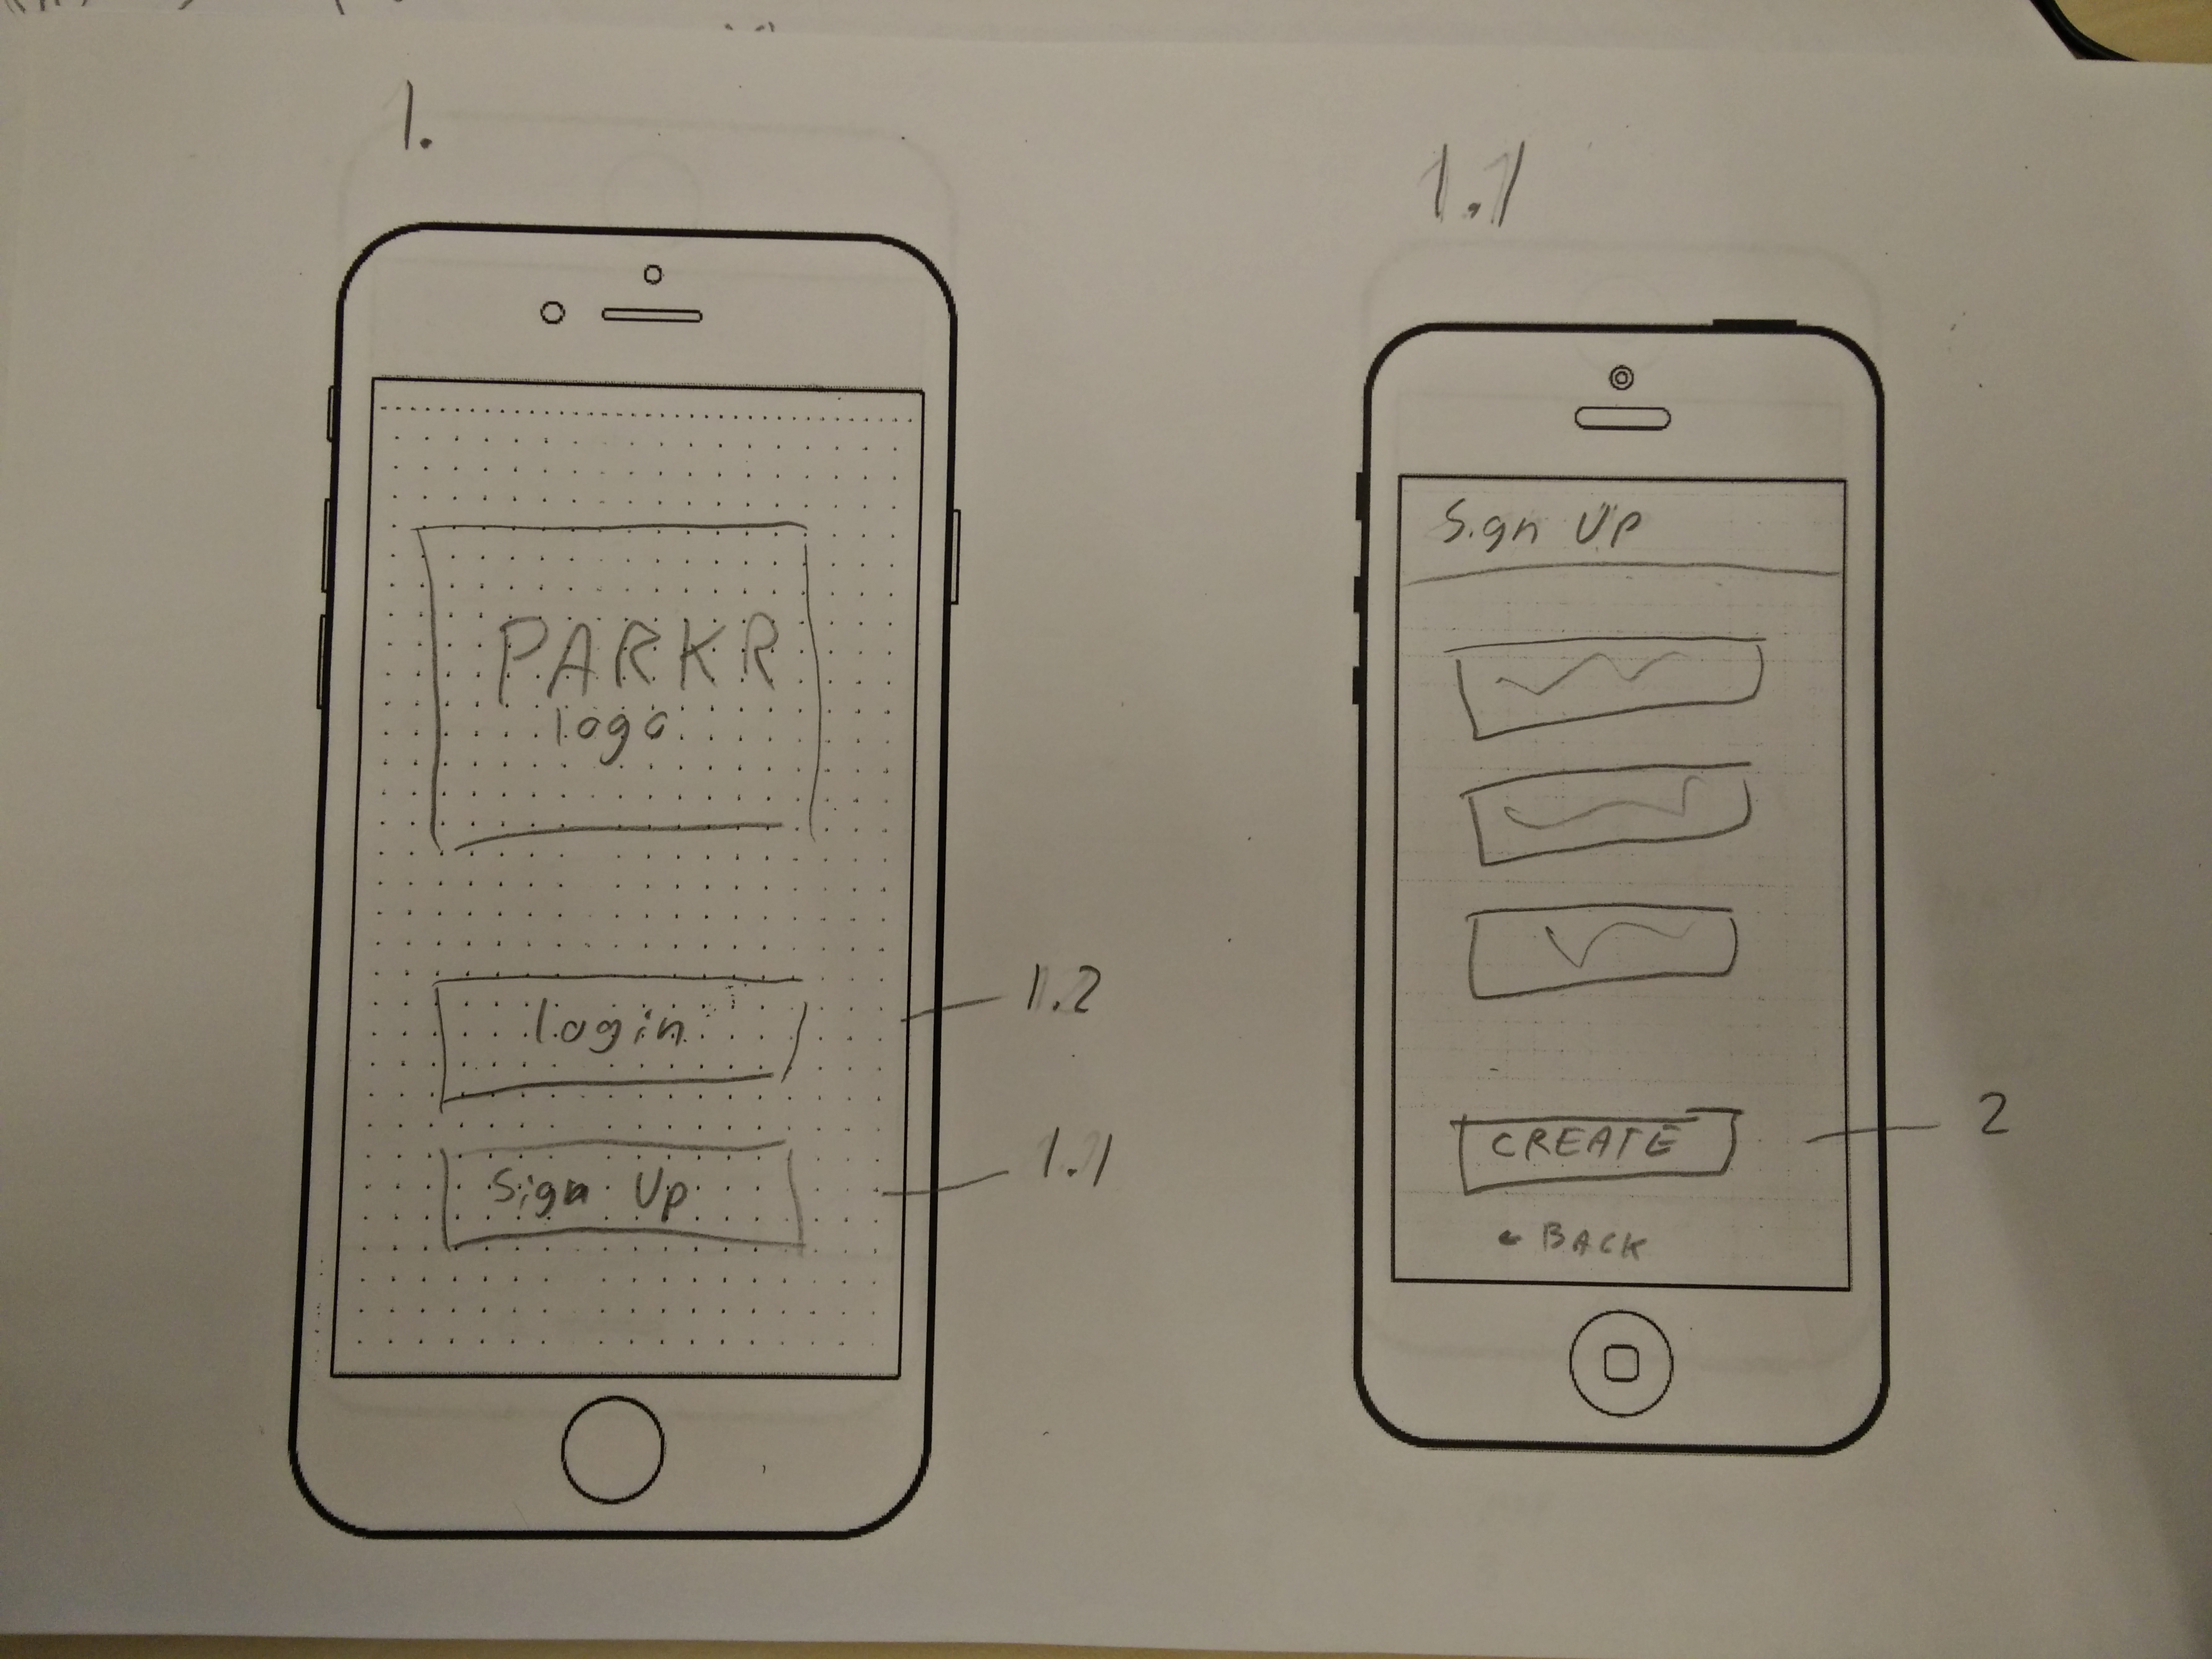 1.
PARKR
logo
login
1.2
Sign Up
1.1
1.1
Sign Up
CREATE
2
← BACK